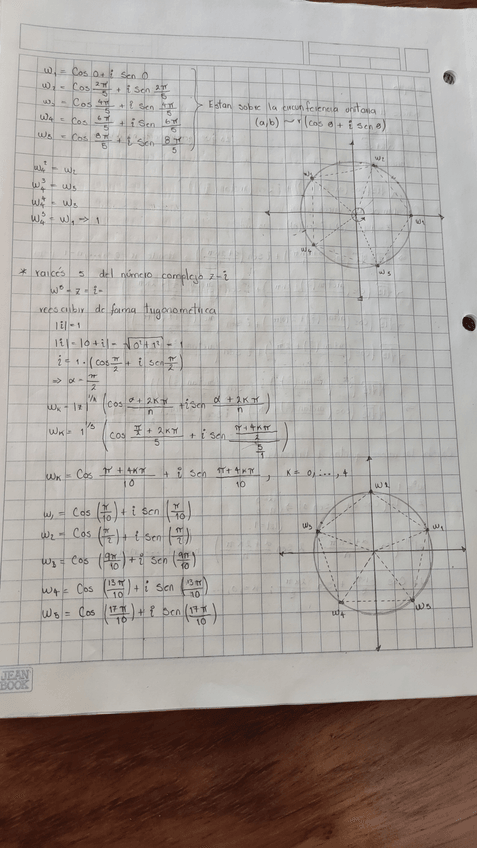 w₁ = Cos 0 + i Sen 0
w₂ = Cos 2π/5 + i Sen 2π/5
w₃ = Cos 4π/5 + i Sen 4π/5
w₄ = Cos 6π/5 + i Sen 6π/5
w₅ = Cos 8π/5 + i Sen 8π/5
Estan sobre la circunferencia unitaria
(a,b) ~ r (cos θ + i sen θ)
w₂
w₃
w₁
w₄
w₅
= w₂
= w₅
= w₃
= w₁ → 1
* raices 5 del número complejo z = i
w⁵ = z = i
reescribir de forma trigonométrica
|i| = 1
|i| = |0 + i| = √(0² + 1²) = 1
i = 1 · (cos π/2 + i sen π/2)
⇒ α = π/2
wₖ = |z|^(1/n) (cos (α + 2kπ)/n + i sen (α + 2kπ)/n)
wₖ = 1^(1/5) (cos (π/2 + 2kπ)/5 + i sen ((π + 4kπ)/2)/(5/1))
wₖ = Cos (π + 4kπ)/10 + i Sen (π + 4kπ)/10 , k = 0, ..., 4
w₁ = Cos (π/10) + i Sen (π/10)
w₂ = Cos (π/2) + i Sen (π/2)
w₃ = Cos (9π/10) + i Sen (9π/10)
w₄ = Cos (13π/10) + i Sen (13π/10)
w₅ = Cos (17π/10) + i Sen (17π/10)
w₂
w₃
w₁
w₄
w₅
JEAN
BOOK